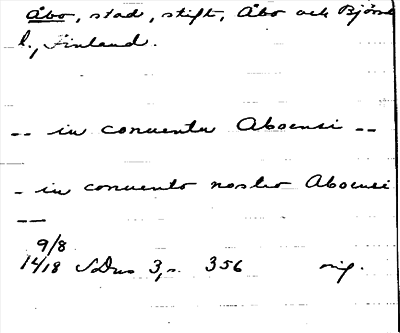 Åbo, stad, stift, Åbo och Björneb
l., Finland.
-- in conuentu Aboensi --
- in conuento nostro Aboensi
--
9/8
1418 SDns 3, s. 356 orig.